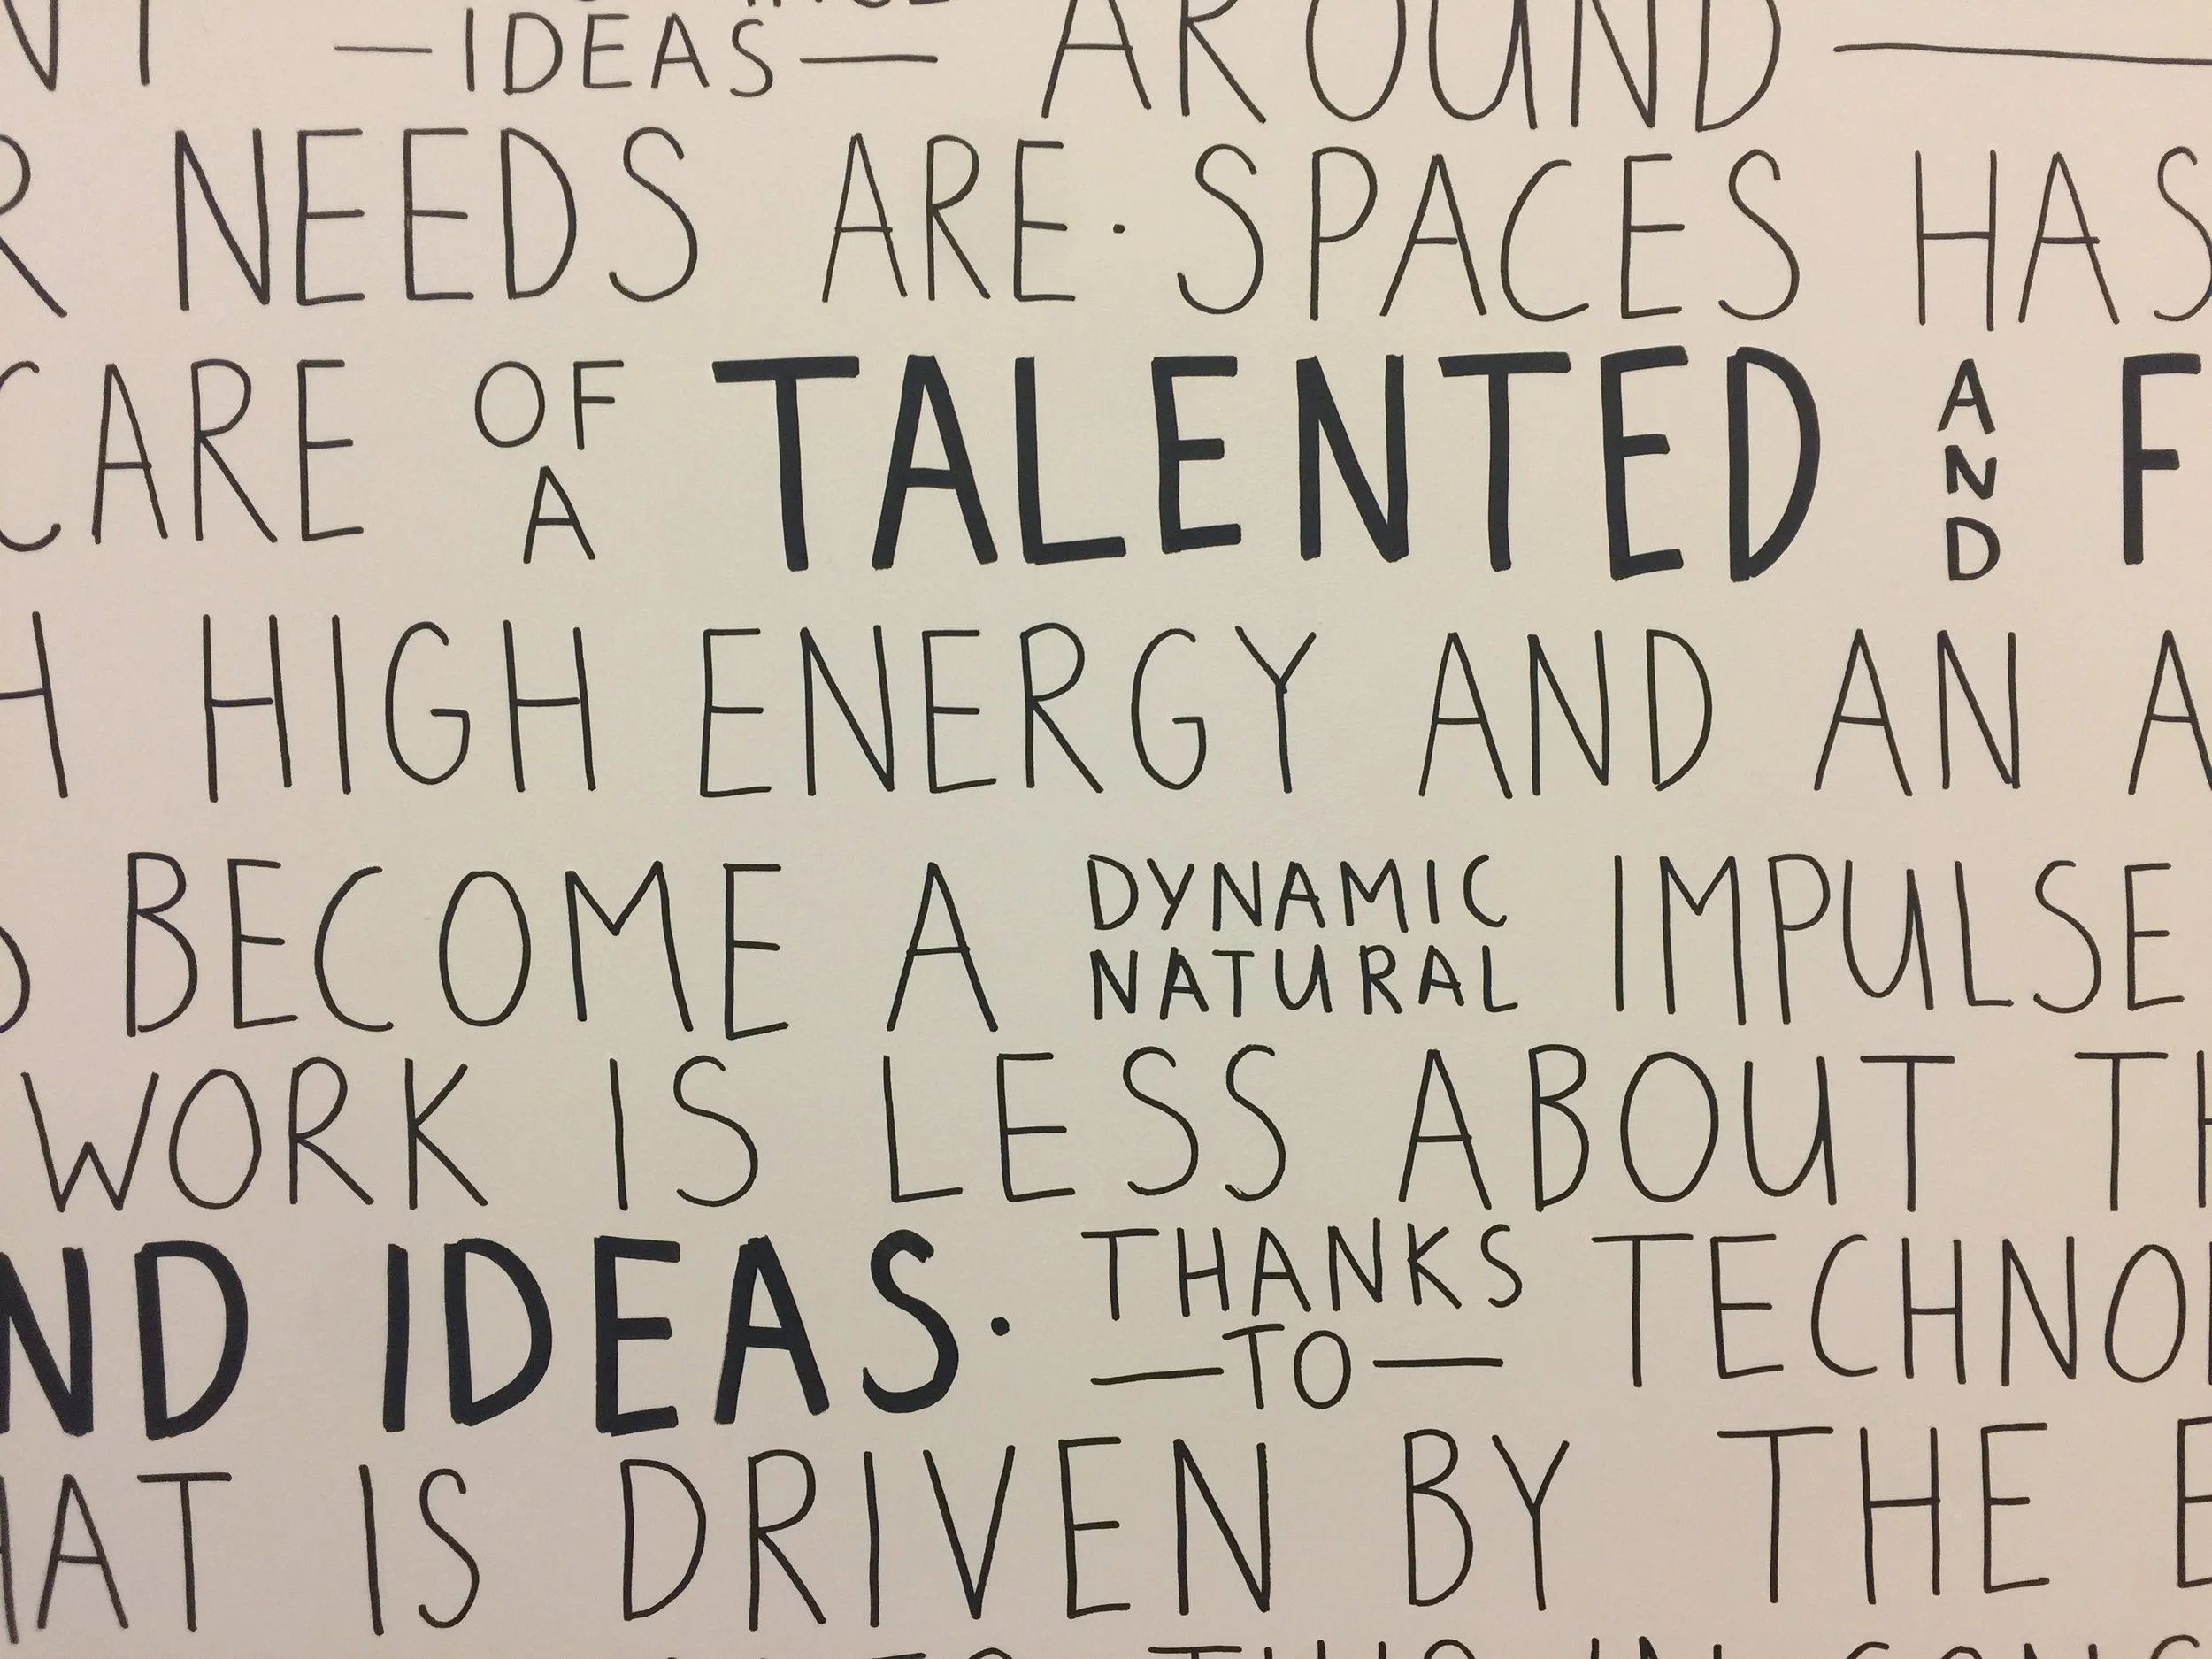 IDEAS AROUND
NEEDS ARE. SPACES HAS
CARE OF A TALENTED AND F
H HIGH ENERGY AND AN A
BECOME A DYNAMIC NATURAL IMPULSE
WORK IS LESS ABOUT TH
ND IDEAS. THANKS TO TECHNO
HAT IS DRIVEN BY THE E